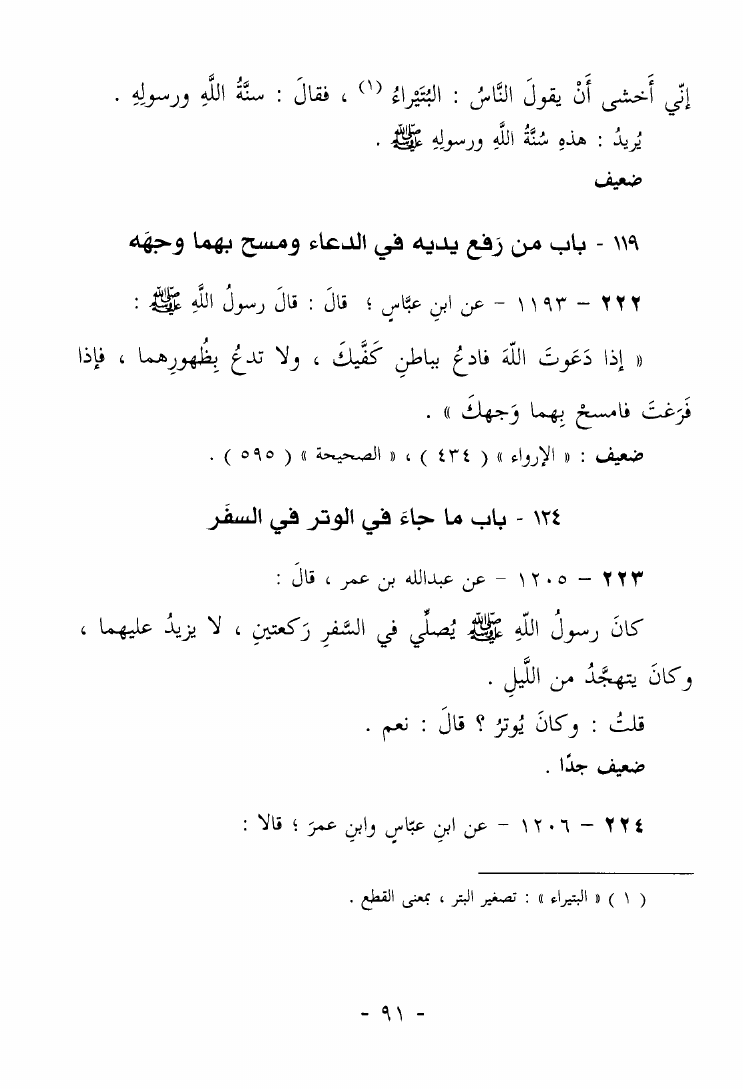 إنّي أَخشى أَنْ يقولَ النَّاسُ : البُتَيْراءُ (١) ، فقالَ : سنَّةُ اللَّهِ ورسولِهِ .
يُريدُ : هذهِ سُنَّةُ اللَّهِ ورسولِهِ ﷺ .
ضعيف
١١٩ - باب من رَفع يديه في الدعاء ومسح بهما وجهَه
٢٢٢ – ١١٩٣ – عن ابنِ عبَّاسٍ ؛ قالَ : قالَ رسولُ اللَّهِ ﷺ :
« إذا دَعَوتَ اللّهَ فادعُ بباطنِ كَفَّيكَ ، ولا تدعُ بِظُهورِهما ، فإذا
فَرَغتَ فامسحْ بِهما وَجهكَ » .
ضعيف : « الإرواء » ( ٤٣٤ ) ، « الصحيحة » ( ٥٩٥ ) .
١٢٤ - باب ما جاءَ في الوتر في السفَر
٢٢٣ – ١٢٠٥ – عن عبدالله بن عمر ، قالَ :
كانَ رسولُ اللّهِ ﷺ يُصلِّي في السَّفرِ رَكعتينِ ، لا يزيدُ عليهما ،
وكانَ يتهجَّدُ من اللَّيلِ .
قلتُ : وكانَ يُوترُ ؟ قالَ : نعم .
ضعيف جدًا .
٢٢٤ – ١٢٠٦ – عن ابنِ عبّاسٍ وابنِ عمرَ ؛ قالا :
( ١ ) « البتيراء » : تصغير البتر ، بمعنى القطع .
- ٩١ -